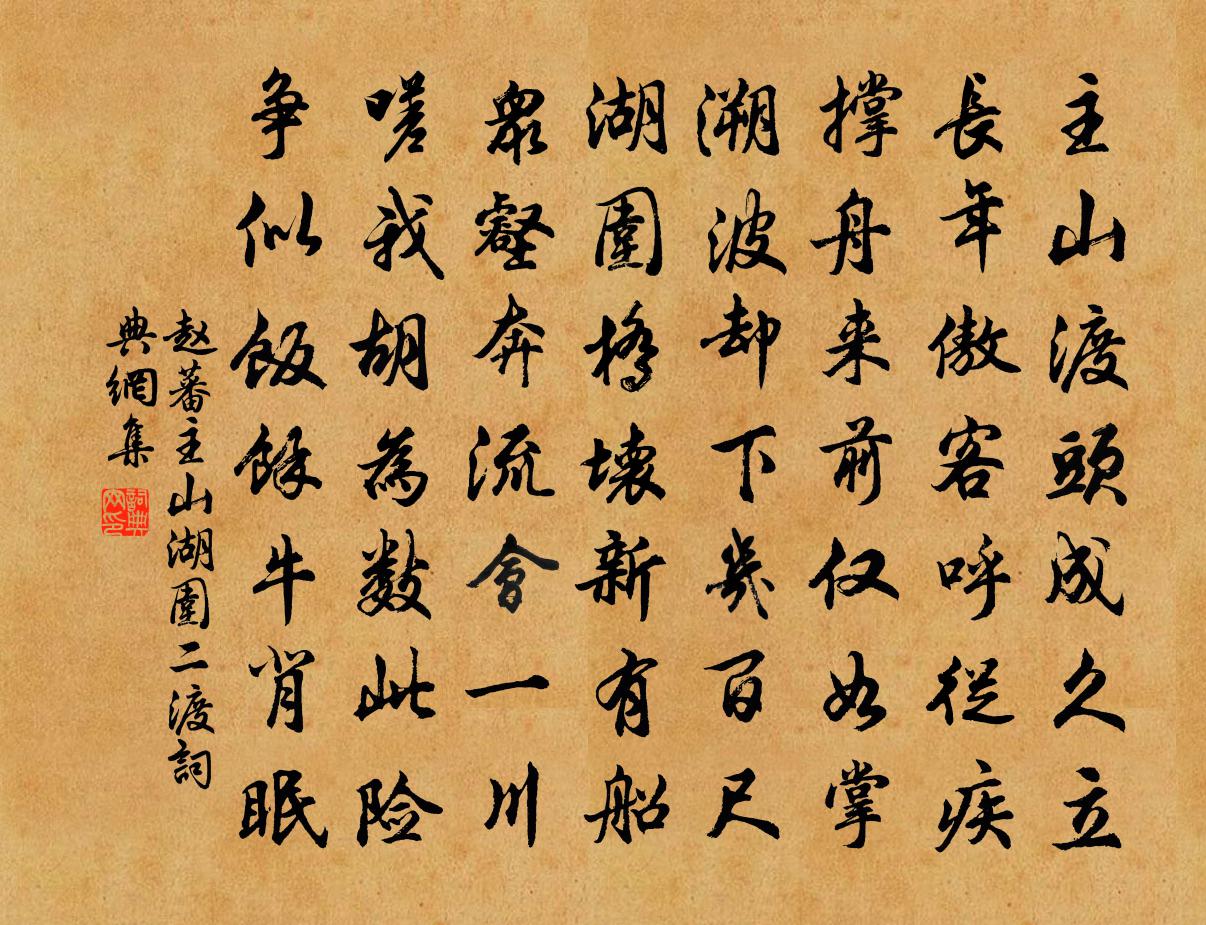 主山渡頭成久立
長年傲客呼從疾
撐舟来前仅如掌
溯波却下幾百尺
湖圍橋壞新有船
衆壑奔流會一川
嗟我胡為數此险
争似飯餘牛背眠
赵蕃主山湖圍二渡詞
典網集
詞典網印